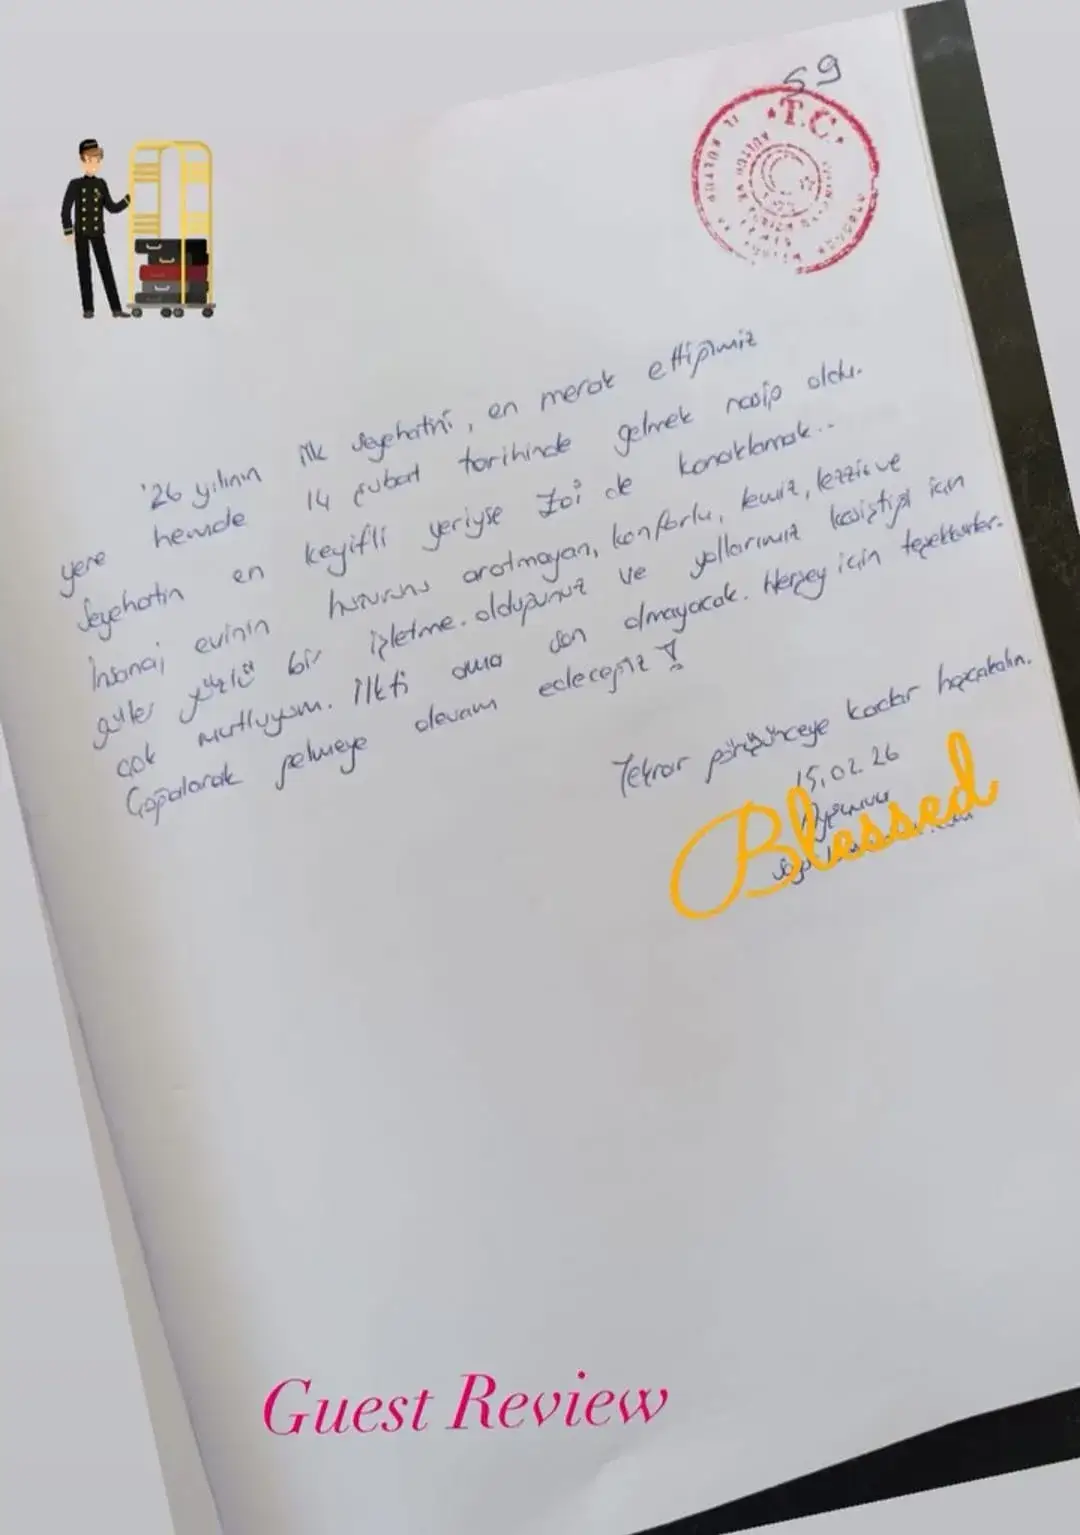 59
T.C.
'26 yılının ilk seyehatini, en merak ettiğimiz
yere hemde 14 şubat tarihinde gelmek nasip oldu.
Seyehatin en keyifli yeriyse Zoi de konaklamak..
İnsanaj evinin huzurunu aratmayan, konforlu, temiz, lezziz ve
güler yüzlü bir işletme. olduğunuz ve yollarımız kesiştiği için
çok mutluyum. İlkti ama son olmayacak. Herşey için teşekkürler.
Çoğalarak gelmeye devam edeceğiz !
Tekrar görüşünceye kadar hoşçakalın.
15.02.26
Blessed
Guest Review